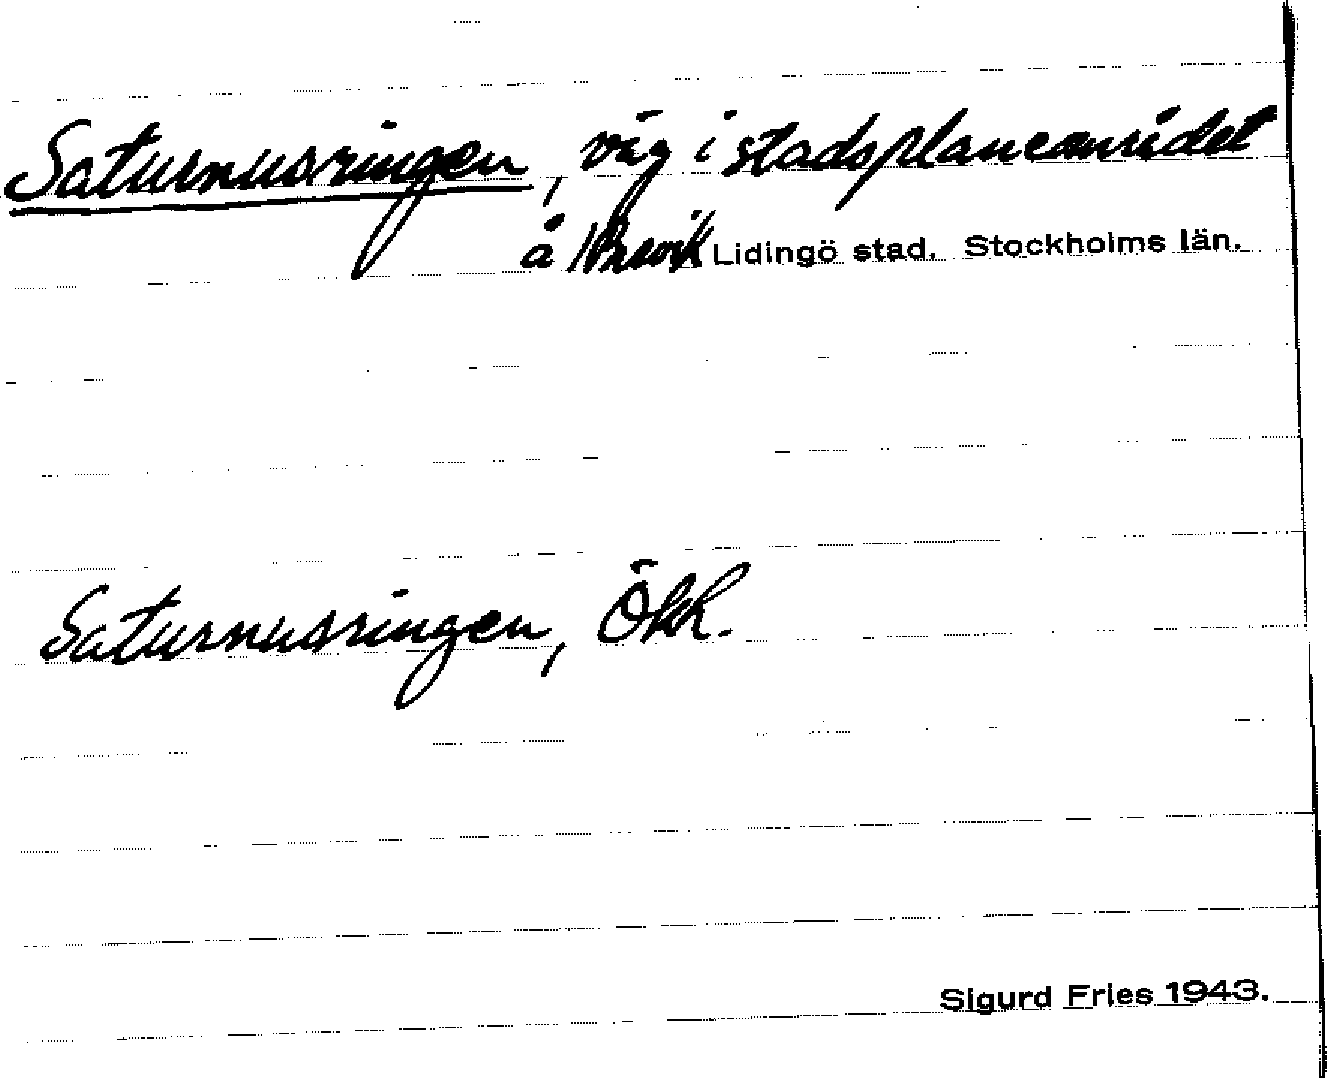 Saturnusringen, väg i stadsplaneområdet
å Brevik Lidingö stad. Stockholms län.
Saturnusringen, Ökk.
Sigurd Fries 1943.